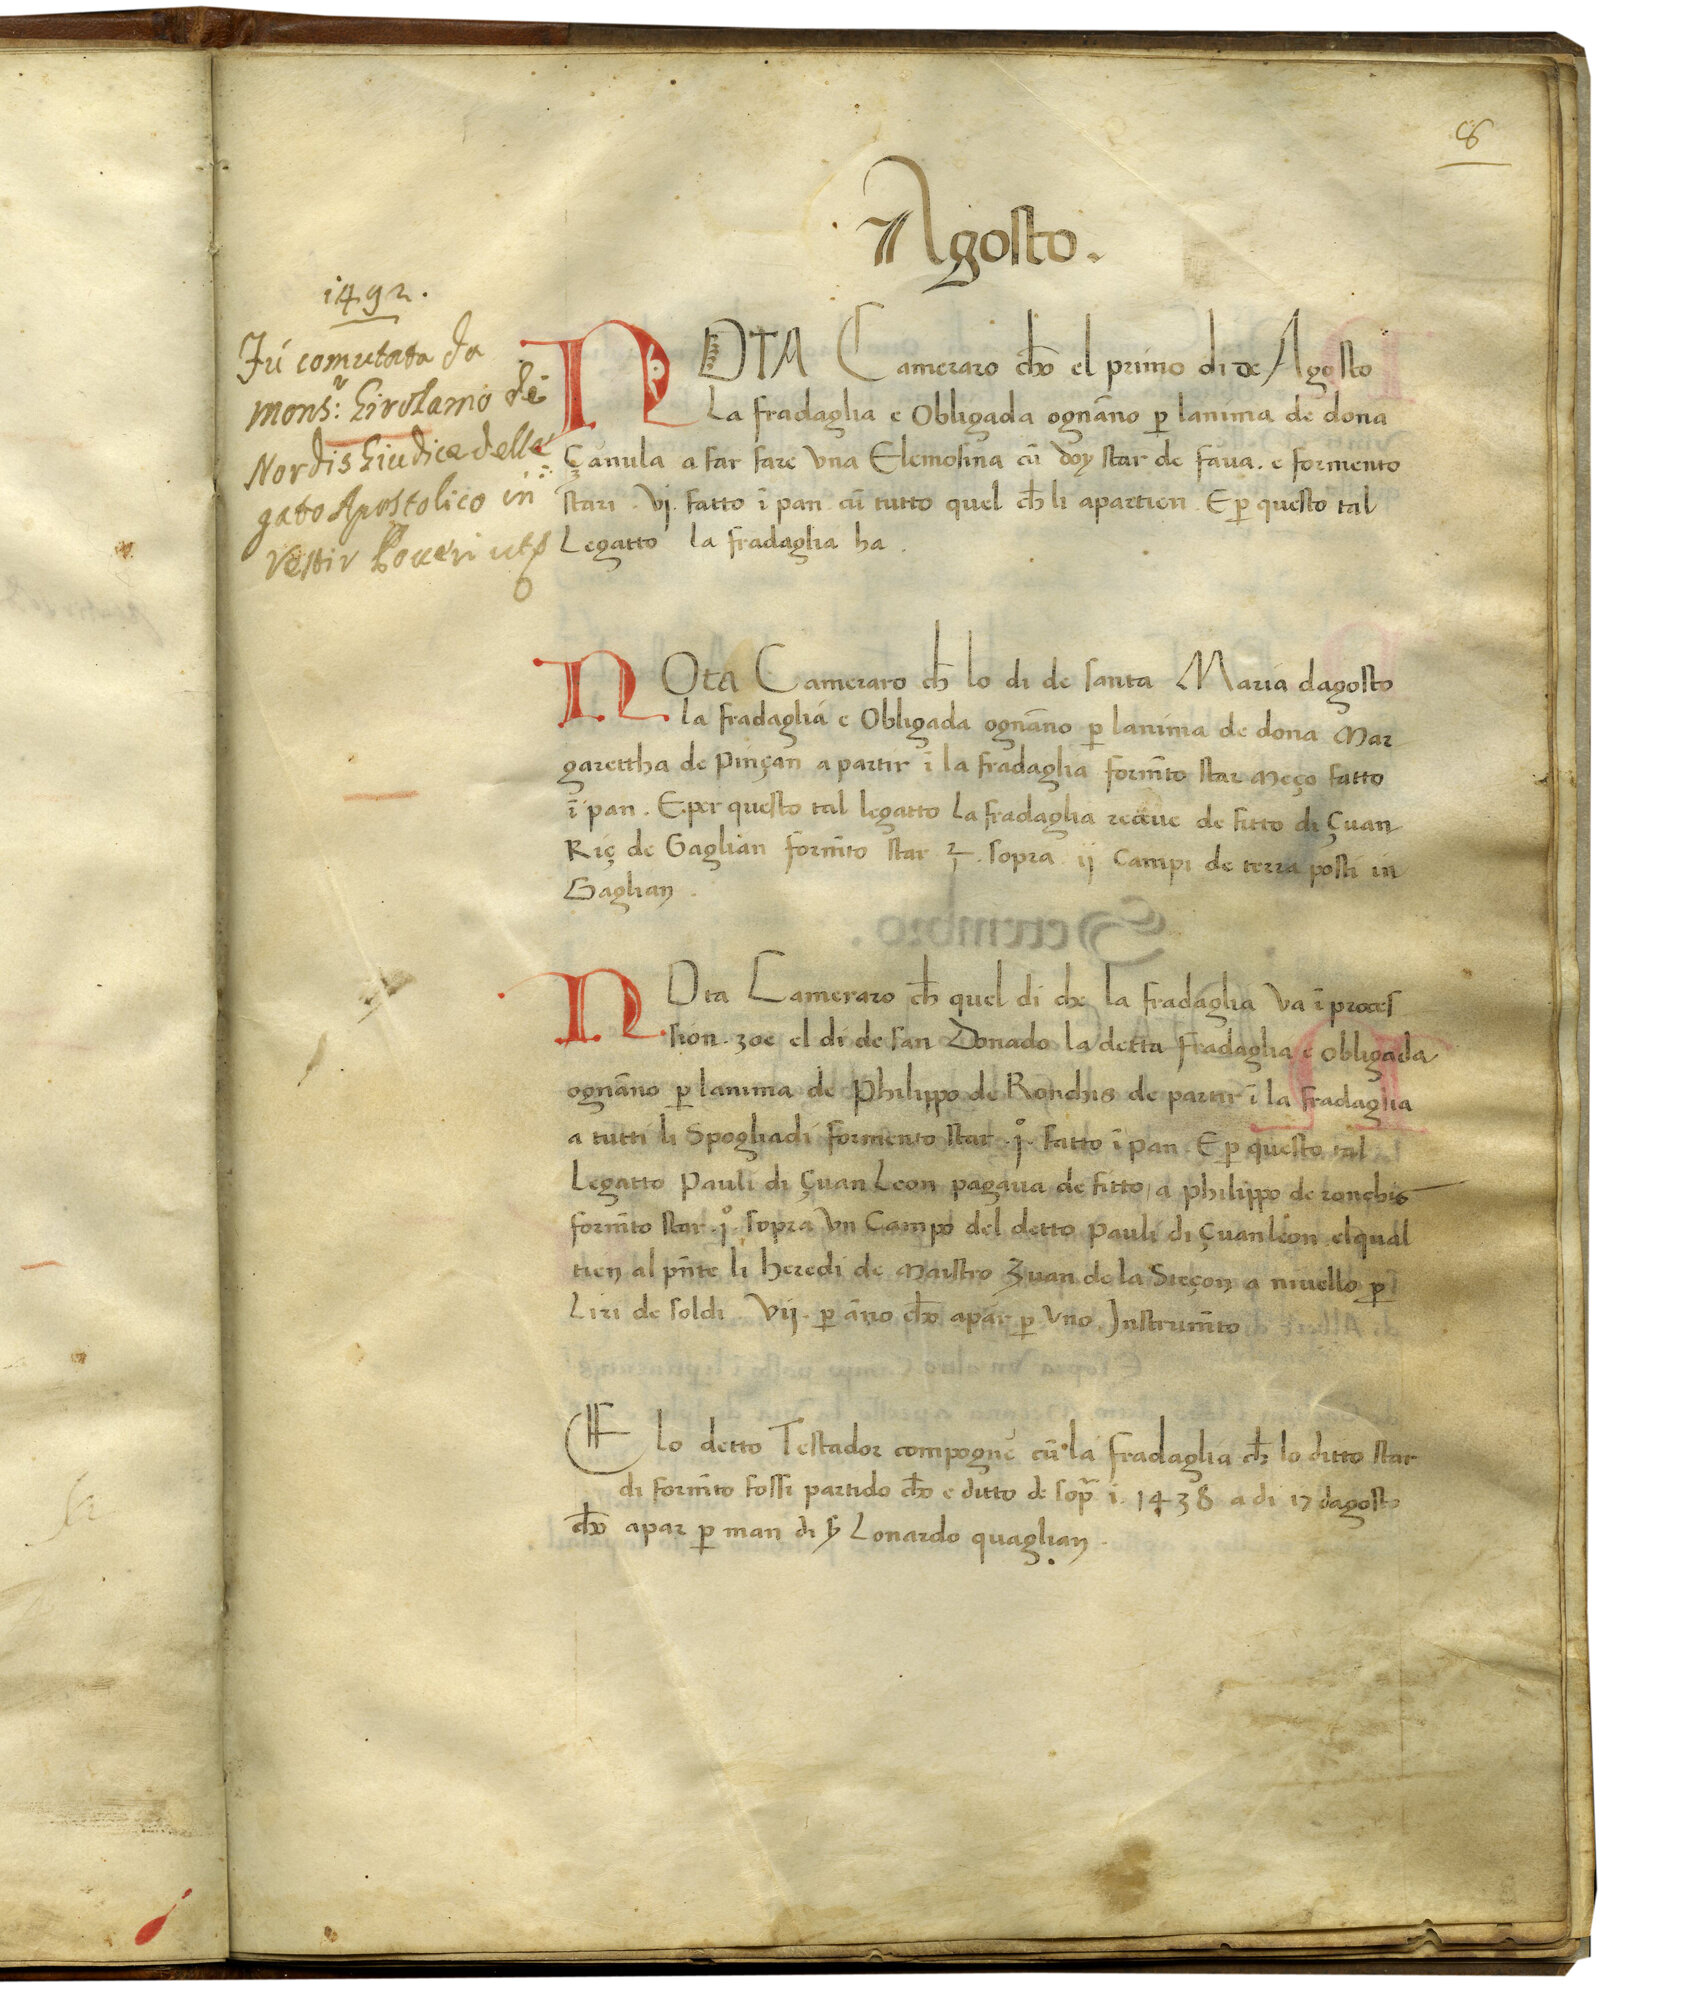 8
Agosto.
1492.
Fú comutata da
mons:r Girolamo de
Nordis Giudice della
gato Apostolico in
vestir Poueri
NOTA Cameraro cħo el primo di de Agosto
La fradaglia e Obligada ognāno p̲ lanima de dona
Çanula a far fare Vna Elemosina cū doy star de faua. e formento
stari . vj. fatto ī pan cū tutto quel cħ li apartien. E p̲ questo tal
Legatto la fradaglia ha .
NOta Cameraro cħ lo di de santa Maria dagosto
la fradaglia e Obligada ognāno p̲ lanima de dona Mar
garettha de Pinçan a partir ī la fradaglia form̄to star meço fatto
ī pan . E per questo tal legatto la fradaglia receue de fitto di Çuan
Riç de Gaglian form̄to star . sopra ij Campi de terra posti in
Gaglian .
NOta Cameraro cħ quel di che la fradaglia va ī proces
sion. zoe el di de san Donado la detta fradaglia e obligada
ognāno p̲ lanima de Philippo de Ronchis de partir ī la fradaglia
a tutti li Spogliadi formento star .jº. fatto ī pan. E p̲ questo tal
Legatto Pauli di Çuan Leon pagaua de fitto a philippo de ronchis
form̄to star .jº. sopra Vn Campo del detto Pauli di Çuanleon elqual
tien al pn̄te li heredi de Maistro Zuan de la Sieçon a niuello p̲
Liri de soldi Vij. p̲ āno cħo apar p̲ Vno Jnstrum̄to
E lo detto Testador compogne cū la fradaglia cħ lo ditto star
di form̄to fossi partido cħo e ditto de sop̄ i. 1438 a di 17 dagosto
cħo apar p̲ man di ẜ Lonardo quaglian .